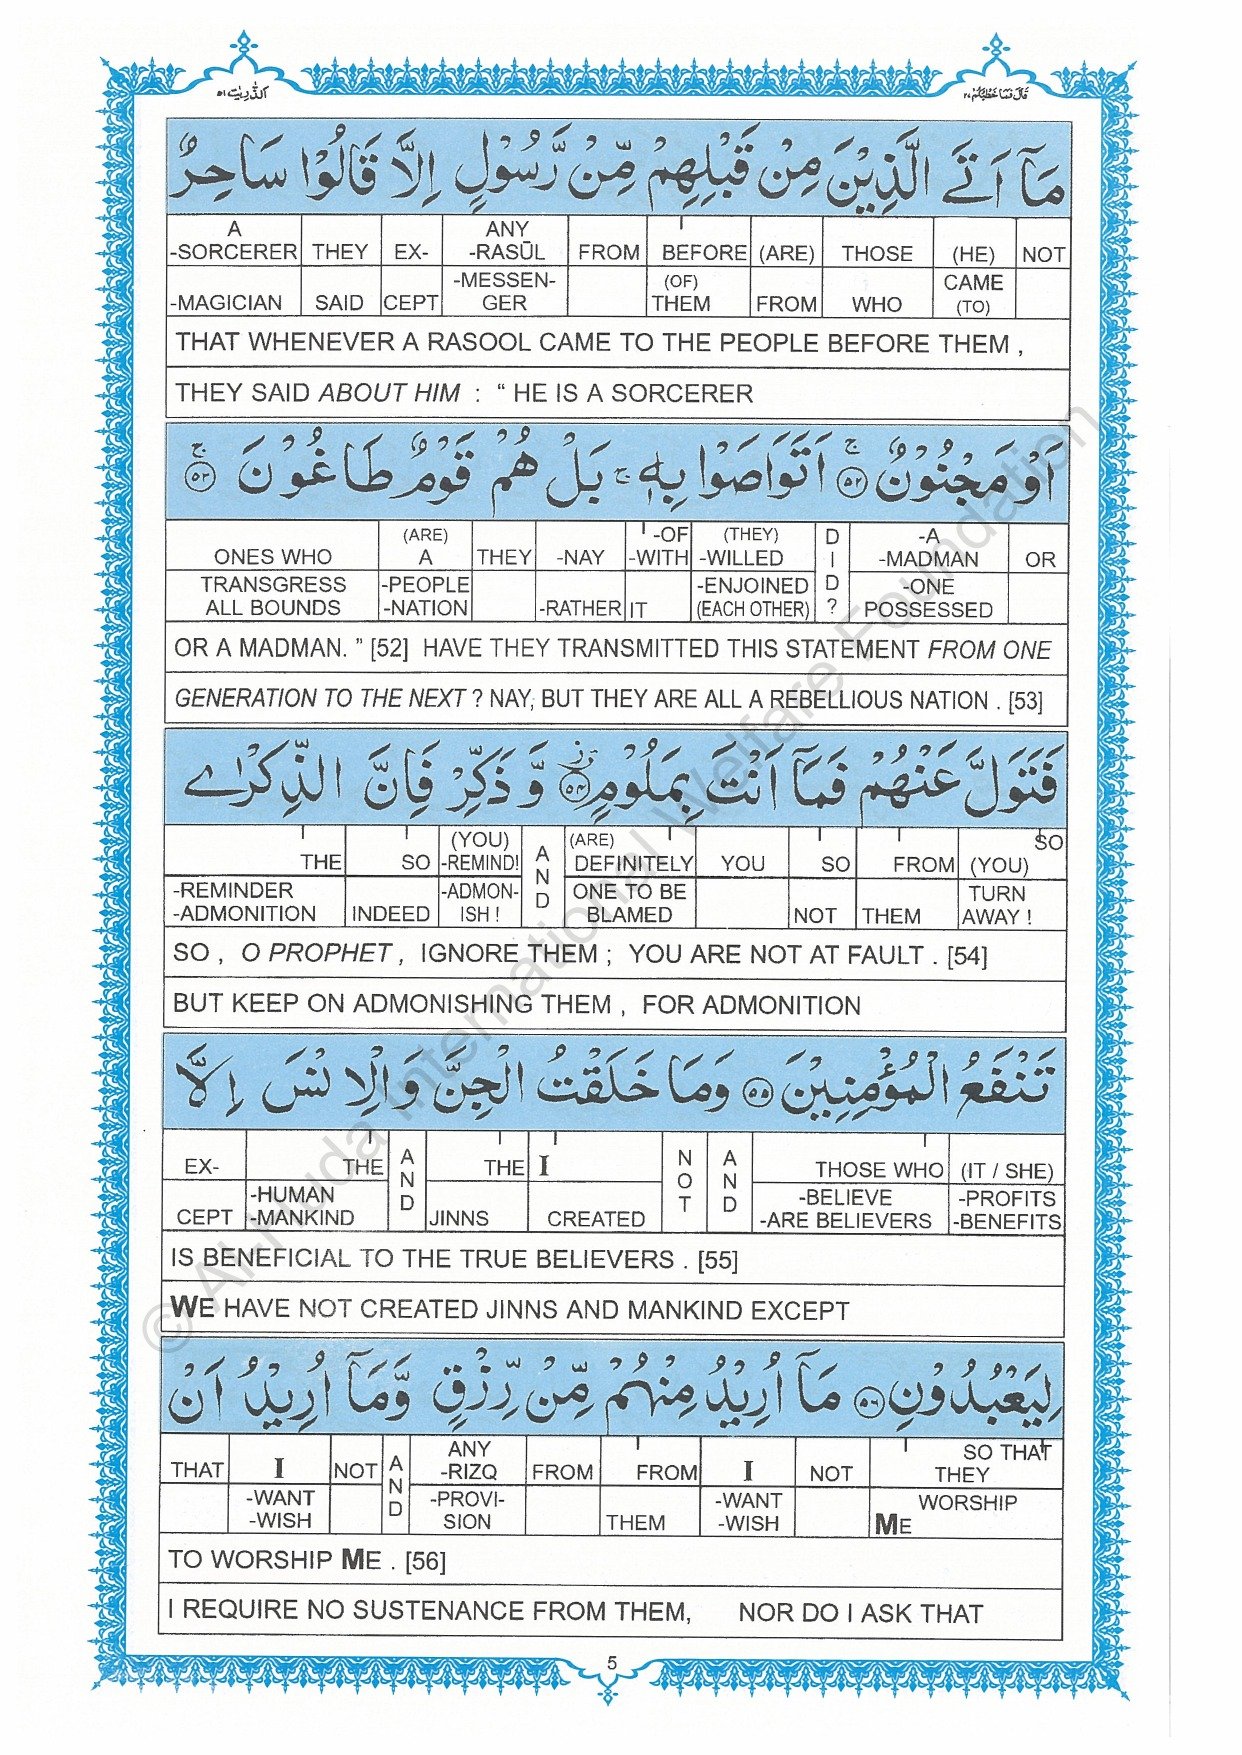 قَالَ فَمَا خَطْبُكُمْ ٢٧
اَلذّٰرِيٰت ٥١
مَآ اَتَى الَّذِيْنَ مِنْ قَبْلِهِمْ مِّنْ رَّسُوْلٍ اِلَّا قَالُوْا سَاحِرٌ
A ANY
-SORCERER THEY EX- -RASŪL FROM BEFORE (ARE) THOSE (HE) NOT
-MESSEN- (OF) CAME
-MAGICIAN SAID CEPT GER THEM FROM WHO (TO)
THAT WHENEVER A RASOOL CAME TO THE PEOPLE BEFORE THEM ,
THEY SAID ABOUT HIM : “ HE IS A SORCERER
اَوْ مَجْنُوْنٌ ۚ ٥٢ اَتَوَاصَوْا بِهٖ ۚ بَلْ هُمْ قَوْمٌ طَاغُوْنَ ۚ ٥٣
(ARE) -OF (THEY) D -A
ONES WHO A THEY -NAY -WITH -WILLED I -MADMAN OR
TRANSGRESS -PEOPLE -ENJOINED D -ONE
ALL BOUNDS -NATION -RATHER IT (EACH OTHER) ? POSSESSED
OR A MADMAN. ” [52] HAVE THEY TRANSMITTED THIS STATEMENT FROM ONE
GENERATION TO THE NEXT ? NAY, BUT THEY ARE ALL A REBELLIOUS NATION . [53]
فَتَوَلَّ عَنْهُمْ فَمَآ اَنْتَ بِمَلُوْمٍ ٥٤ وَّ ذَكِّرْ فَاِنَّ الذِّكْرٰى
(YOU) (ARE) SO
THE SO -REMIND! AND DEFINITELY YOU SO FROM (YOU)
-REMINDER -ADMON- ONE TO BE TURN
-ADMONITION INDEED ISH ! BLAMED NOT THEM AWAY !
SO , O PROPHET , IGNORE THEM ; YOU ARE NOT AT FAULT . [54]
BUT KEEP ON ADMONISHING THEM , FOR ADMONITION
تَنْفَعُ الْمُؤْمِنِيْنَ ٥٥ وَمَا خَلَقْتُ الْجِنَّ وَالْاِنْسَ اِلَّا
EX- THE AND THE I NOT AND THOSE WHO (IT / SHE)
-HUMAN -BELIEVE -PROFITS
CEPT -MANKIND JINNS CREATED -ARE BELIEVERS -BENEFITS
IS BENEFICIAL TO THE TRUE BELIEVERS . [55]
WE HAVE NOT CREATED JINNS AND MANKIND EXCEPT
لِيَعْبُدُوْنِ ٥٦ مَآ اُرِيْدُ مِنْهُمْ مِّنْ رِّزْقٍ وَّمَآ اُرِيْدُ اَنْ
ANY SO THAT
THAT I NOT AND -RIZQ FROM FROM I NOT THEY
-WANT -PROVI- -WANT WORSHIP
-WISH SION THEM -WISH ME
TO WORSHIP ME . [56]
I REQUIRE NO SUSTENANCE FROM THEM, NOR DO I ASK THAT
5
© Al-Huda International Welfare Foundation